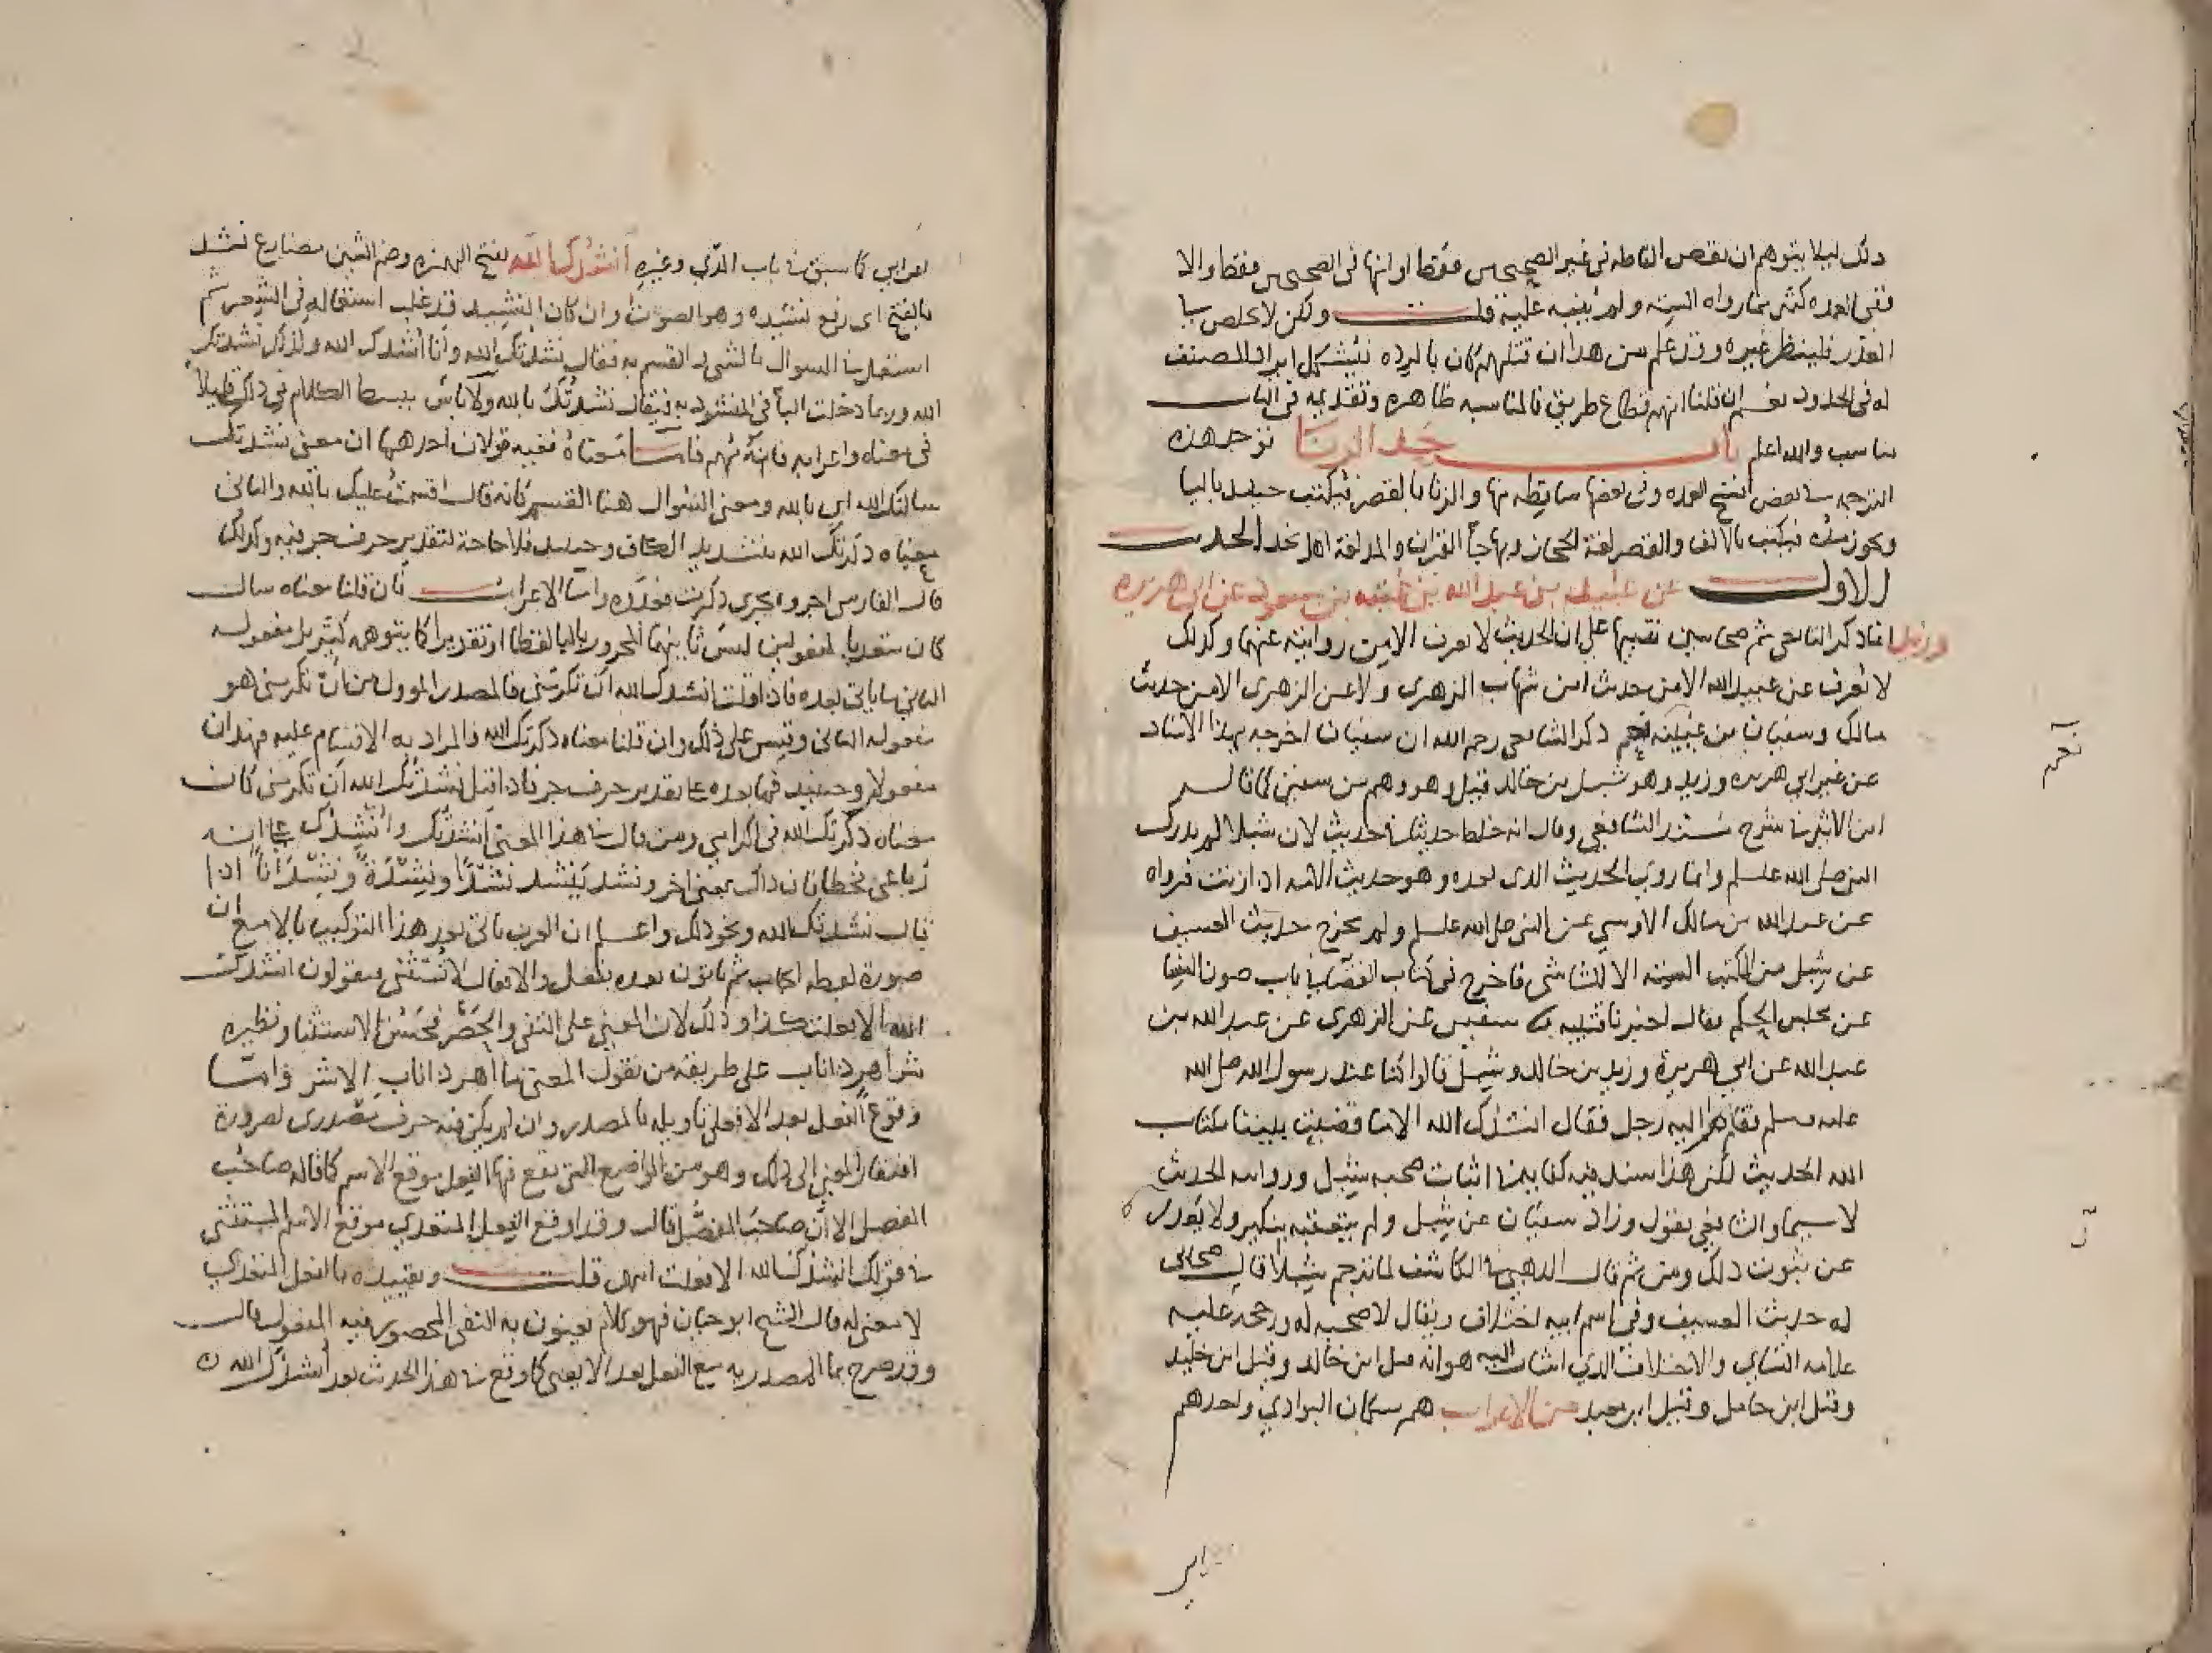 ذلك ليلا يتوهم ان بعض الفاظه في غير الصحيحين فقط او انها في الصحيحين فقط والا
ففي العمده كثير مما رواه الستة ولم ينبه عليه قلت ولكن لا يخلص بها
العذر فلينظر غيره وقد علم من هذا ان قتلهم كان بالرده فيشكل ايراد المصنف
له في الحدود نعم ان قلنا انهم قطاع طريق فالمناسبه ظاهره وتقديمه في الباب
مناسب والله اعلم باب حد الزنا توجد هذه
الترجمه في بعض نسخ العمده وفي بعضها ساقطه منها والزنا بالقصر فيكتب حينئذ باليا
ويجوز مده فيكتب بالالف والقصر لغة الحجاز وبها جاء القران والمد لغة اهل نجد الحديث
الاول عن عبيد الله بن عبد الله بن عتبه بن مسعود عن ابي هريره
وزيد انما ذكر التابعي ثم صحابيين تنبيها على ان الحديث لا يعرف الا من روايته عنهما وكذلك
لا تعرف عن عبيد الله الا من حديث ابن شهاب الزهري ولا عن الزهري الا من حديث
مالك وسفيان بن عيينه نعم ذكر الشافعي رحمه الله ان سفيان اخرجه بهذا الاسناد
عن غير ابي هريره وزيد وهو شبل بن خالد قيل وهو وهم من سفين كما قال
ابن الاثير في شرح مسند الشافعي وقال انه خلط حديثا في حديث لان شبلا لم يدرك
النبي صلى الله عليه وسلم وانما روي الحديث الذي بعده وهو حديث الامه اذا زنت فرواه
عن عبد الله بن مالك الاوسي عن النبي صلى الله عليه وسلم ولم يخرج حديث العسيف
عن شبل من الكتب الستة الا النسائي فاخرج في كتاب القضا في باب صون النسا
عن مجلس الحكم فقال اخبرنا قتيبه ثنا سفين عن الزهري عن عبيد الله بن
عبد الله عن ابي هريرة وزيد بن خالد وشبل قالوا كنا عند رسول الله صلى الله
عليه وسلم فقام اليه رجل فقال انشدك الله الا ما قضيت بيننا بكتاب
الله الحديث لكن هذا سند فيه كما ترى اثبات صحبه شبل وروايه الحديث
لا سيما والشافعي يقول وزاد سفيان عن شبل ولم يتعقبه بنكير ولا
عن ثبوت ذلك ومن ثم قال الذهبي في الكاشف لما ترجم شبلا قال صحابي
له حديث العسيف وفي اسم ابيه اختلاف ويقال لا صحبه له ورجحه عليه
علامه النسائي والاختلاف الذي اشار اليه هو انه شبل ابن خالد وقيل ابن خليد
وقيل ابن حامد وقيل ابن معبد من الاعراب هم سكان البوادي واحدهم
اعرابي كما سبق في باب المذي وغيره انشدك الله بفتح الهمزه وضم الشين مضارع نشد
بالفتح اي رفع نشيده وهو الصوت وان كان النشيد قد غلب استعماله في الشعر ثم
استعمل في السوال بالشي او القسم به فقال نشدتك الله وانا انشدك الله ولذلك نشدتك
الله وربما دخلت البا في المنشود به فيقال نشدتك بالله ولا باس ببسط الكلام في ذلك قليلا
في معناه واعرابه فانه مهم فاما معناه ففيه قولان احدهما ان معنى نشدتك
سالتك الله اي بالله ومعنى السوال هنا القسم كانه قال اقسمت عليك بالله والثاني
معناه ذكرتك الله بتشديد الكاف وحينئذ فلا حاجة لتقدير حرف جر فيه وكذلك
قال الفارسي اجروه مجرى ذكرت فعدوه واما الاعراب فان قلنا معناه سال
كان متعديا لمفعولين ليس ثانيهما المجرور بالبا لفظا او تقديرا كما يتوهمه كثير بل مفعوله
الثاني ما ياتي بعده فاذا قلت انشدك الله ان تكرمني فالمصدر الموول من ان تكرمني هو
مفعوله الثاني وقيس على ذلك وان قلنا معناه ذكرتك الله فالمراد به الاقسام عليه فهذان
مفعولاه وحينئذ فما بعده على تقدير حرف جر فاذا قيل نشدتك الله ان تكرمني كان
معناه ذكرتك الله في اكرامي ومن قال في هذا المعنى انشدتك وانشدك على انه
رباعي فخطا فان ذاك بمعنى اخر ونشد ينشد نشدا ونشدة ونشدانا اذا
قال نشدتك الله ونحو ذلك واعلم ان العرب تاتي بعد هذا التركيب بالا مع ان
صورة لفظه ايجاب ثم ياتون بعده بفعل والافعال لا تستثنى فيقولون انشدك
الله الا فعلت كذا وذلك لان المعنى على النفي والحصر فحسن الاستثنا ونظيره
شر اهر ذا ناب على طريقة من يقول المعنى ما اهر ذا ناب الا شر واما
وقوع الفعل بعد الا فعلى تاويله بالمصدر وان لم يكن فيه حرف مصدري لضرورة
افتقار المعنى الى ذلك وهو من المواضع التي يقع فيها الفعل موقع الاسم كما قاله صاحب
المفصل الا ان صاحب المفصل قال وقد اوقع الفعل المتعدي موقع الاسم المستثنى
في قولك انشدك الله الا فعلت انتهى قلت وتقييده بالفعل المتعدي
لا معنى له قال الشيخ ابو حيان فهو كلام يعنون به النفي المحصور فيه المفعول قال
وقد صرح بما المصدريه مع الفعل بعد الا يعني كما وقع في هذا الحديث بعد انشدك الله